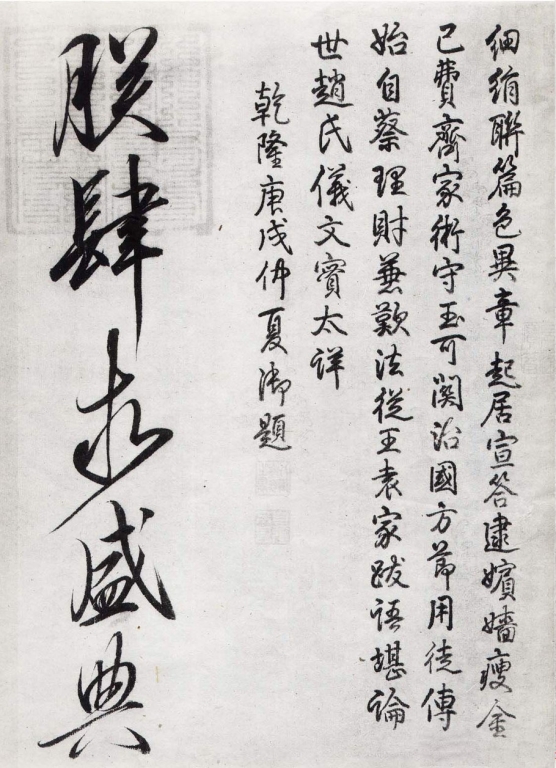 細絹聯篇色異章起居宣答逮嬪嬙瘦金
已費齊家術守玉可關治國方節用徒傳
始自蔡理財兼歎法從王袁家跋語堪論
世趙氏儀文實太詳
乾隆庚戌仲夏御題
朕肆求盛典